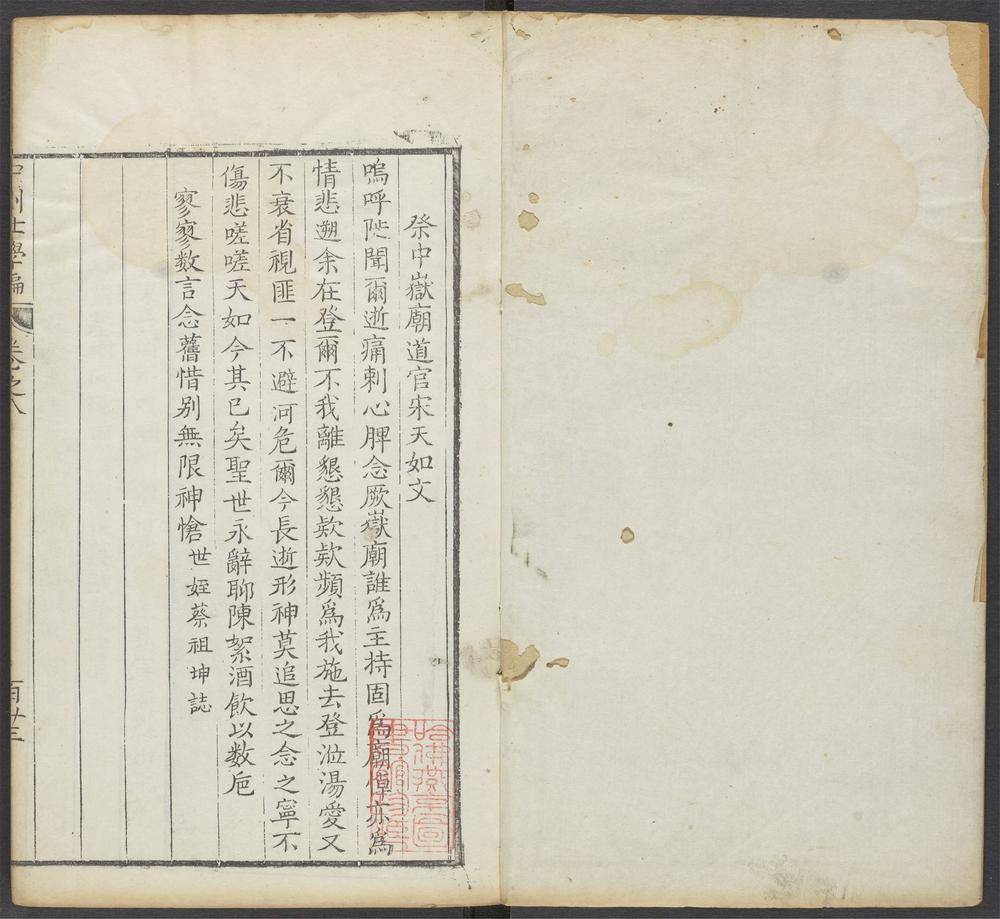 祭中嶽廟道官宋天如文
嗚呼陡聞爾逝痛刺心脾念厥嶽廟誰爲主持固爲廟悼亦爲
情悲遡余在登爾不我離懇懇欵欵頻爲我施去登涖湯愛又
不衰省視匪一不避河危爾今長逝形神莫追思之念之寧不
傷悲嗟嗟天如今其已矣聖世永辭聊陳絮酒飲以数巵
寥寥数言念舊惜别無限神愴世姪蔡祖坤誌
中州士學編
卷之八
百廿三
哈佛燕京圖
書館珍藏